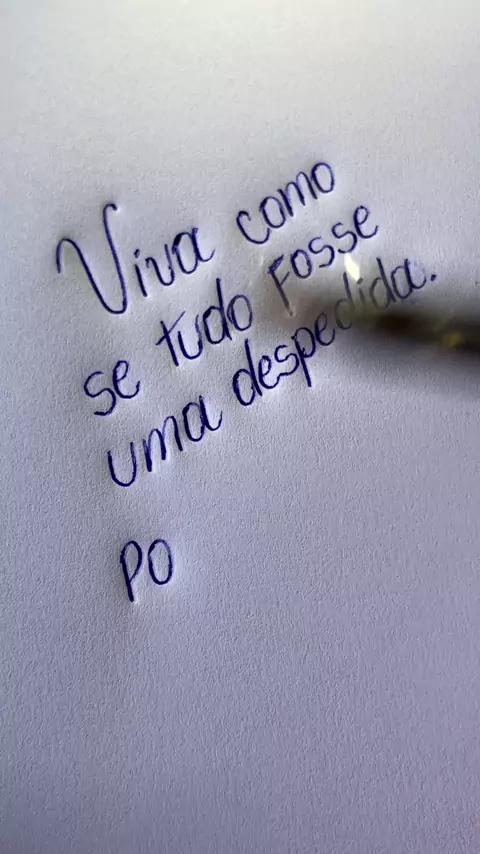 Viva como
se tudo Fosse
uma despedida.
PO